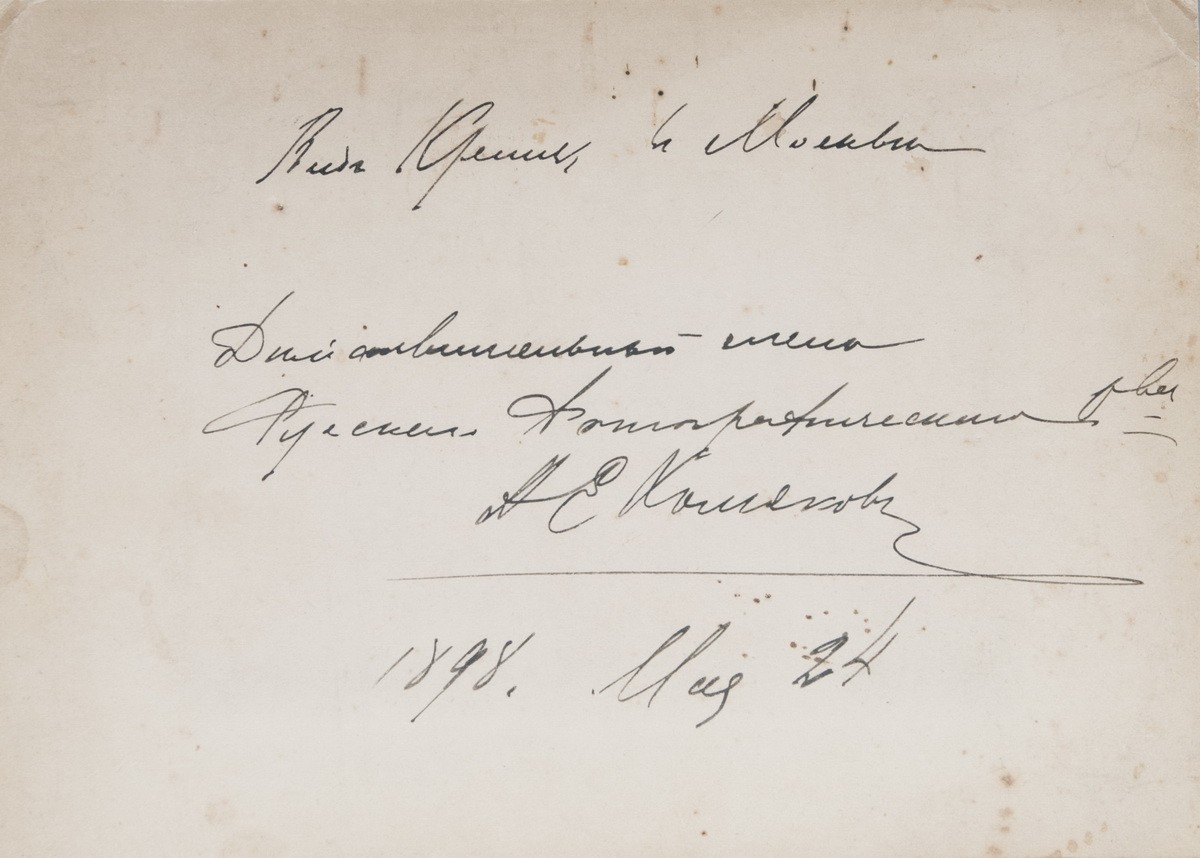 Видъ Кремля и Москвы
Дѣйствительный членъ
Русскаго Фотографическаго
А Е Хомяковъ
1898. Мая 24